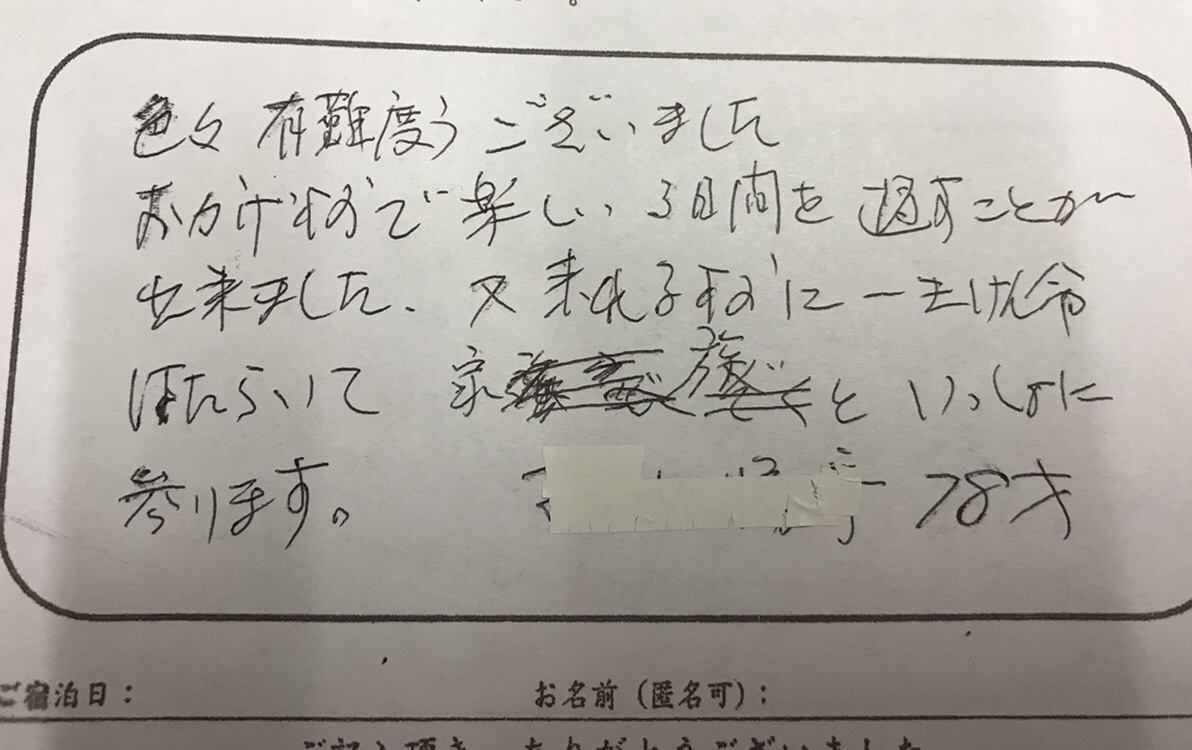 色々有難度うございました
おかげさまで楽しい3日間を過すことが
出来ました、又来れるように一生けん命
ほたらいて 家族といっしょに
参ります。 78才
ご宿泊日：
お名前（匿名可）：
ご記入頂き、ありがとうございました